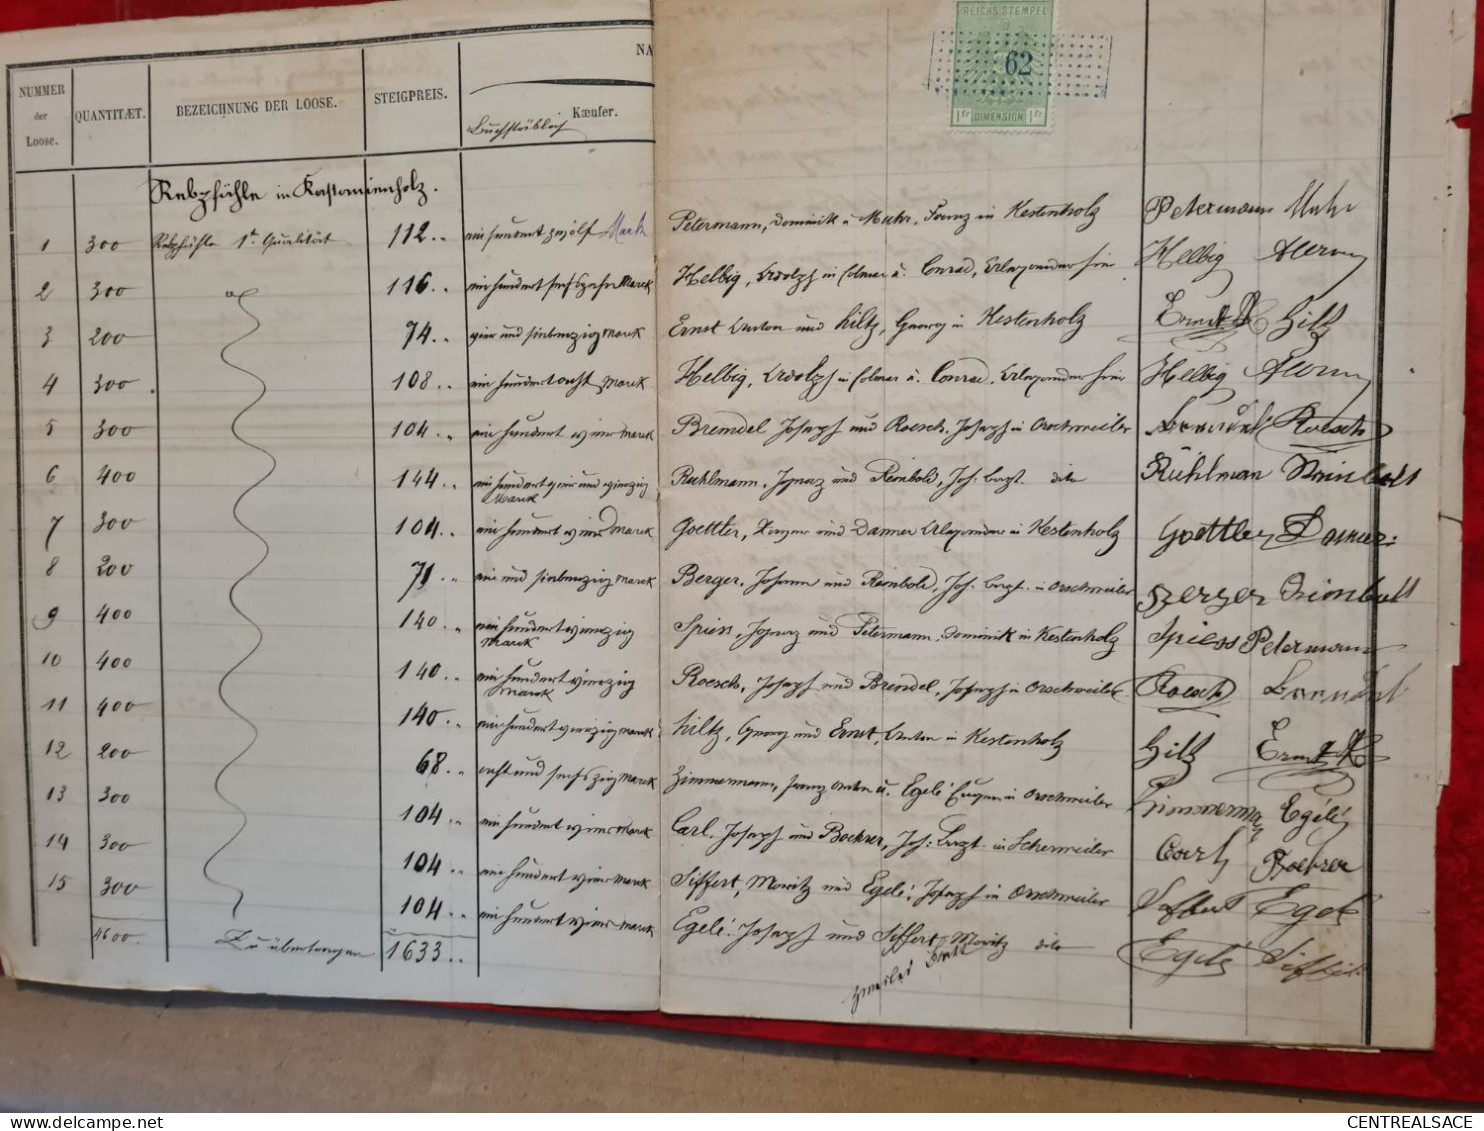 NUMMER der Loose.
QUANTITÆT.
BEZEICHNUNG DER LOOSE.
STEIGPREIS.
NA
Buchstäblich
Kæufer.
REICHS STEMPEL
62
1 fr DIMENSION 1 fr
Rebpfähle in Kastanienholz.
1 300 Rebpfähle 1te Qualität 112 .. ein hundert zwölf Mark Petermann, Dominik u. Muhr, Franz in Kestenholz Petermann Muhr
2 300 id 116 .. ein hundert sechszehn Mark Helbig, Adolph in Colmar u. Conrad, Alexander hier Helbig
3 200 74 .. vier und siebenzig Mark Ernst Anton und Hiltz, Georg in Kestenholz Ernst A Hiltz
4 300 108 .. ein hundert acht Mark Helbig, Adolph in Colmar u. Conrad, Alexander hier Helbig
5 300 104 .. ein hundert vier Mark Brendel Joseph und Roesch, Joseph in Orschweiler Brendel Roesch
6 400 144 .. ein hundert vier und vierzig Mark Ruhlmann, Ignaz und Reinbold, Joh: Bapt. dito Rühlman Reinbold
7 300 104 .. ein hundert vier Mark Goettler, Xavier und Danner Alexander in Kestenholz Goettler Danner
8 200 71 .. ein und siebenzig Mark Berger, Johann und Reinbold, Joh. Bapt. in Orschweiler Berger Reinbold
9 400 140 .. ein hundert vierzig Mark Spiess, Ignaz und Petermann, Dominik in Kestenholz Spiess Petermann
10 400 140 .. ein hundert vierzig Mark Roesch, Joseph und Brendel, Joseph in Orschweiler Roesch Brendel
11 400 140 .. ein hundert vierzig Mark Hiltz, Georg und Ernst, Anton in Kestenholz Hiltz Ernst A
12 200 68 .. acht und sechszig Mark Zimmermann, Franz Anton u. Egelé Eugen in Orschweiler Zimmerman Egélé
13 300 104 .. ein hundert vier Mark Carl, Joseph und Boehrer, Joh: Bapt. in Scherweiler Carl Boehrer
14 300 104 .. ein hundert vier Mark Siffert, Moritz und Egelé, Joseph in Orschweiler Siffert Egele
15 300 104 .. ein hundert vier Mark Egelé, Joseph und Siffert Moritz dito Egelé Siffert
4600. Zu übertragen 1633 ..
CENTREALSACE